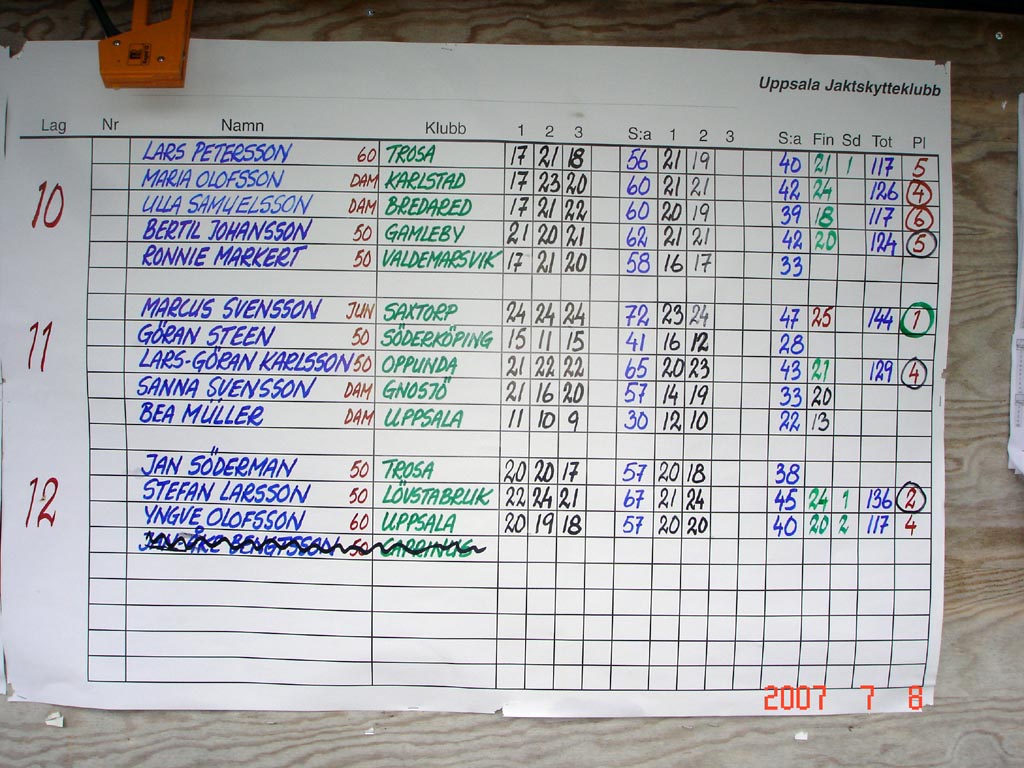 Uppsala Jaktskytteklubb
Lag Nr Namn Klubb 1 2 3 S:a 1 2 3 S:a Fin Sd Tot Pl
10
LARS PETERSSON 60 TROSA 17 21 18 56 21 19 40 21 1 117 5
MARIA OLOFSSON DAM KARLSTAD 17 23 20 60 21 21 42 24 126 4
ULLA SAMUELSSON DAM BREDARED 17 21 22 60 20 19 39 18 117 6
BERTIL JOHANSSON 50 GAMLEBY 21 20 21 62 21 21 42 20 124 5
RONNIE MARKERT 50 VALDEMARSVIK 17 21 20 58 16 17 33
11
MARCUS SVENSSON JUN SAXTORP 24 24 24 72 23 24 47 25 144 1
GÖRAN STEEN 50 SÖDERKÖPING 15 11 15 41 16 12 28
LARS-GÖRAN KARLSSON 50 OPPUNDA 21 22 22 65 20 23 43 21 129 4
SANNA SVENSSON DAM GNOSJÖ 21 16 20 57 14 19 33 20
BEA MÜLLER DAM UPPSALA 11 10 9 30 12 10 22 13
12
JAN SÖDERMAN 50 TROSA 20 20 17 57 20 18 38
STEFAN LARSSON 50 LÖVSTABRUK 22 24 21 67 21 24 45 24 1 136 2
YNGVE OLOFSSON 60 UPPSALA 20 19 18 57 20 20 40 20 2 117 4
50
2007 7 8